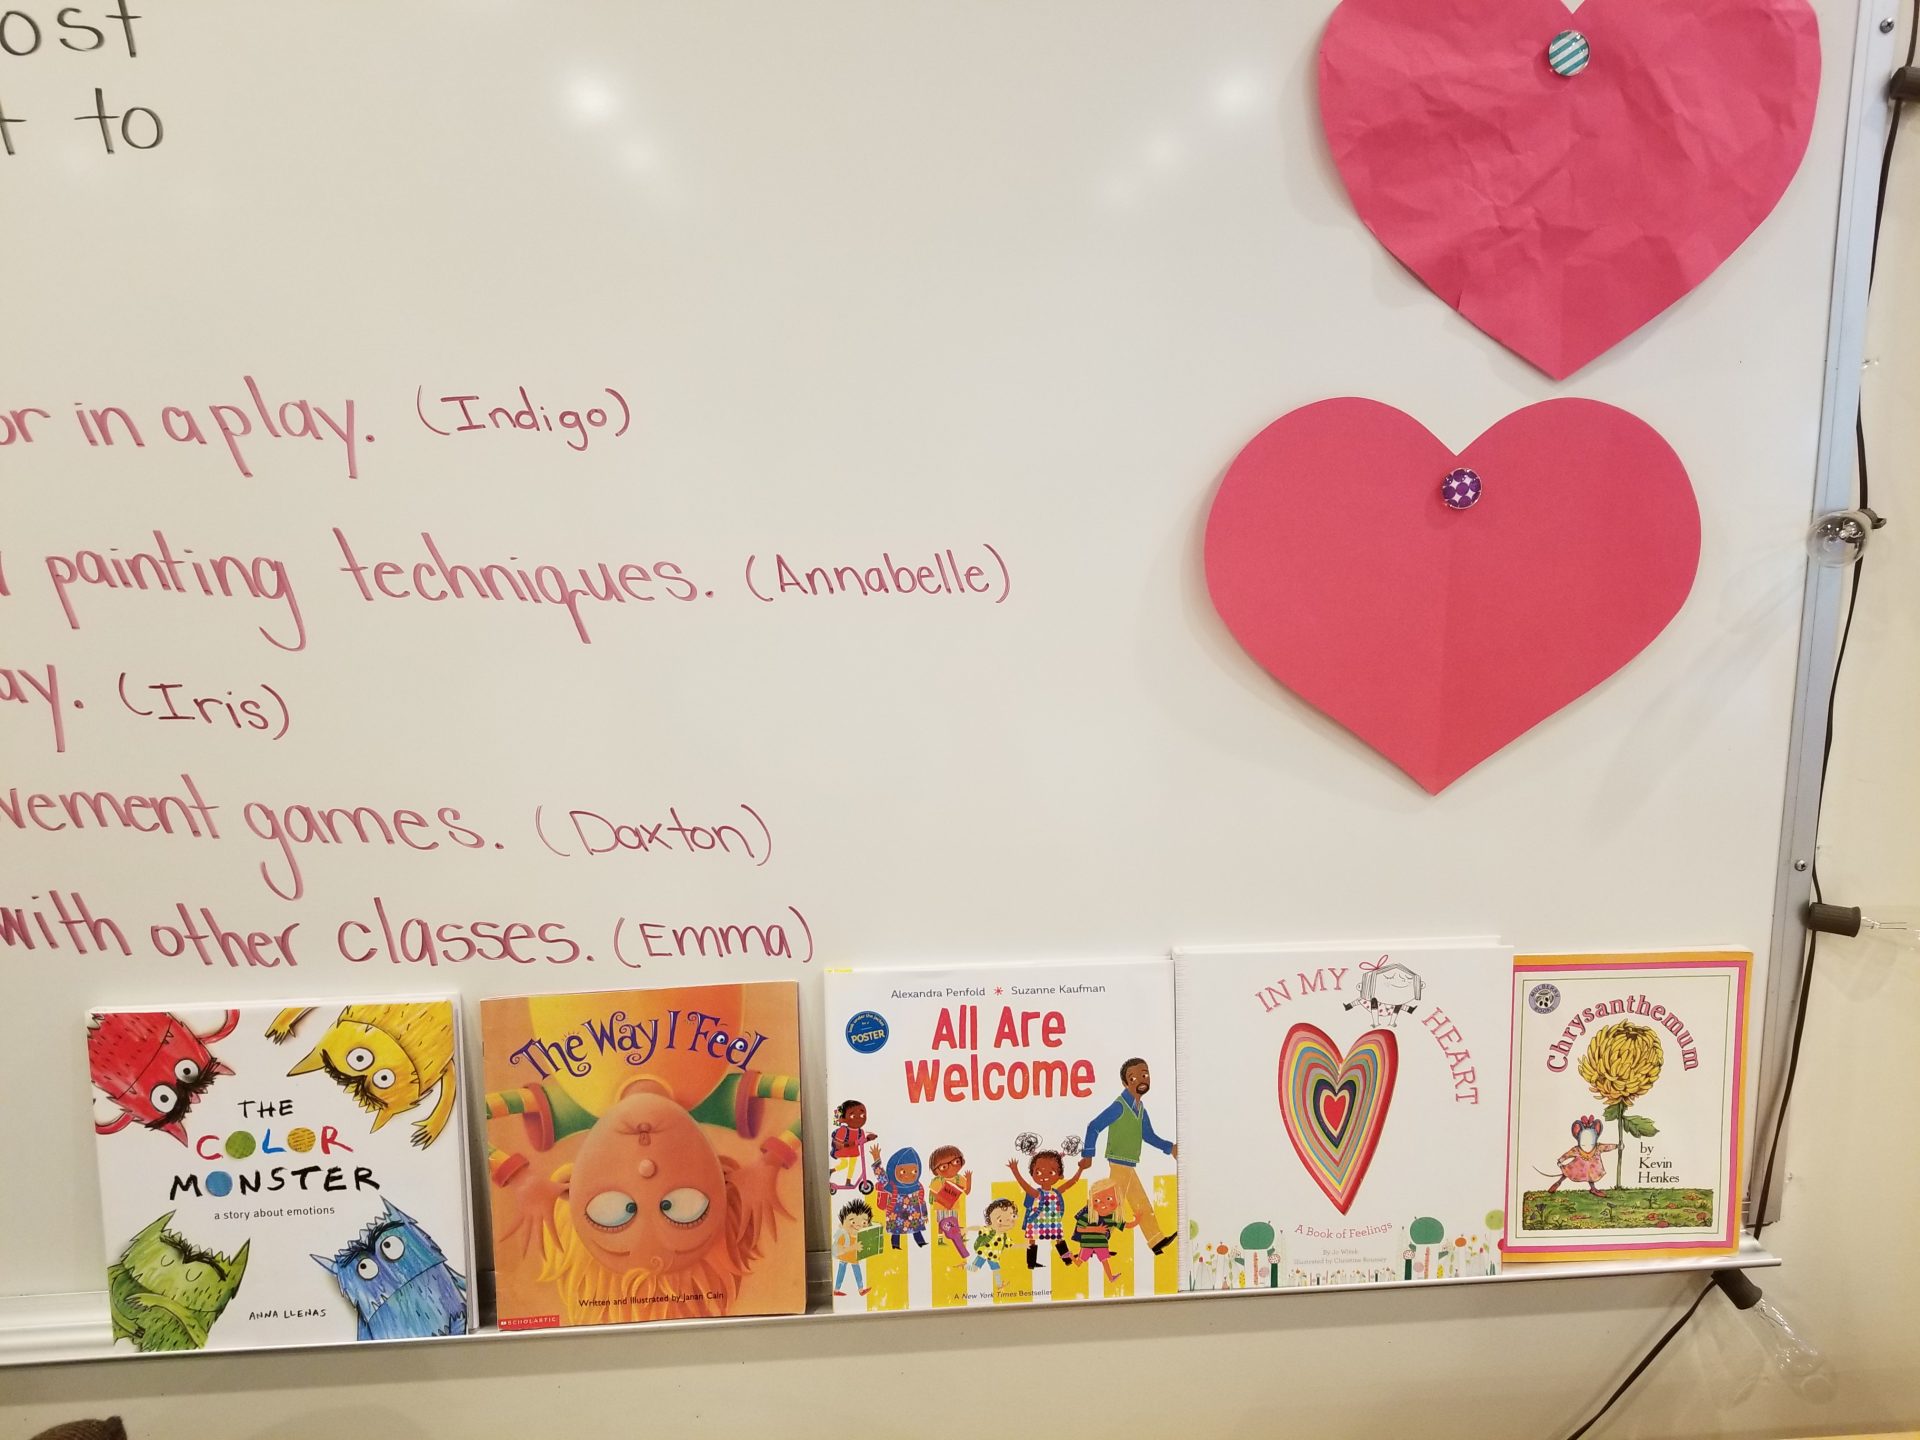 ost
t to
or in a play. (Indigo)
painting techniques. (Annabelle)
ay. (Iris)
vement games. (Daxton)
with other classes. (Emma)
THE
COLOR
MONSTER
a story about emotions
ANNA LLENAS
The Way I Feel
Written and Illustrated by Janan Cain
SCHOLASTIC
Alexandra Penfold * Suzanne Kaufman
POSTER
All Are
Welcome
A New York Times Bestseller
IN MY
HEART
A Book of Feelings
By Jo Witek
Illustrated by Christine Roussey
MULBERRY
BOOKS
Chrysanthemum
by
Kevin
Henkes